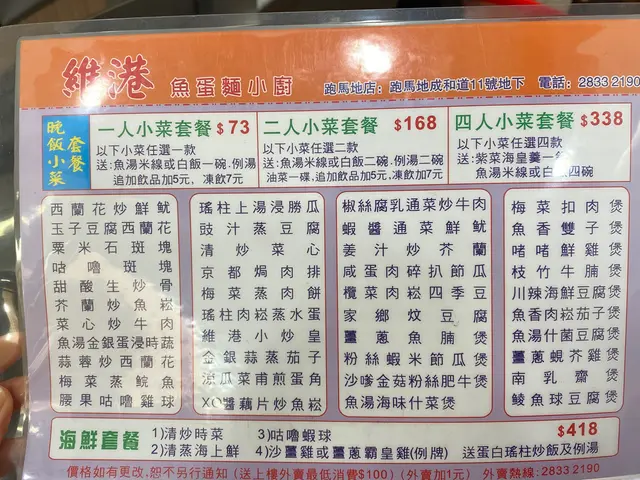 維港 魚蛋麵小廚 跑馬地店：跑馬地成和道11號地下 電話：2833 2190
晚飯小菜套餐
一人小菜套餐 $73
以下小菜任選一款
送：魚湯米線或白飯一碗．例湯
追加飲品加5元，凍飲7元
二人小菜套餐 $168
以下小菜任選二款
送：魚湯米線或白飯二碗．例湯二碗
油菜一碟，追加飲品加5元，凍飲加7元
四人小菜套餐 $338
以下小菜任選四款
送：紫菜海皇羹一
魚湯米線或白 四碗
西蘭花炒鮮魷
玉子豆腐西蘭花
粟米石斑塊
咕嚕斑塊
甜酸生炒骨
芥蘭炒魚崧
菜心炒牛肉
魚湯金銀蛋浸時蔬
蒜蓉炒西蘭花
梅菜蒸鯇魚
腰果咕嚕雞球
瑤柱上湯浸勝瓜
豉汁蒸豆腐
清炒菜心
京都焗肉排
梅菜蒸肉餅
瑤柱肉崧蒸水蛋
維港小炒皇
金銀蒜蒸茄子
涼瓜菜甫煎蛋角
XO醬藕片炒魚崧
椒絲腐乳通菜炒牛肉
蝦醬通菜鮮魷
姜汁炒芥蘭
咸蛋肉碎扒節瓜
欖菜肉崧四季豆
家鄉炆豆腐
薑蔥魚腩煲
粉絲蝦米節瓜煲
沙嗲金菇粉絲肥牛煲
魚湯海味什菜煲
梅菜扣肉煲
魚香雙子煲
啫啫鮮雞煲
枝竹牛腩煲
川辣海鮮豆腐煲
魚香肉崧茄子煲
魚湯什菌豆腐煲
薑蔥蜆芥雞煲
南乳齋煲
鯪魚球豆腐煲
海鮮套餐 1)清炒時菜 3)咕嚕蝦球 $418
2)清蒸海上鮮 4)沙薑雞或薑蔥霸皇雞(例牌) 送蛋白瑤柱炒飯及例湯
價格如有更改，恕不另行通知（送上樓外賣最低消費$100）（外賣加1元）外賣熱線：2833 2190